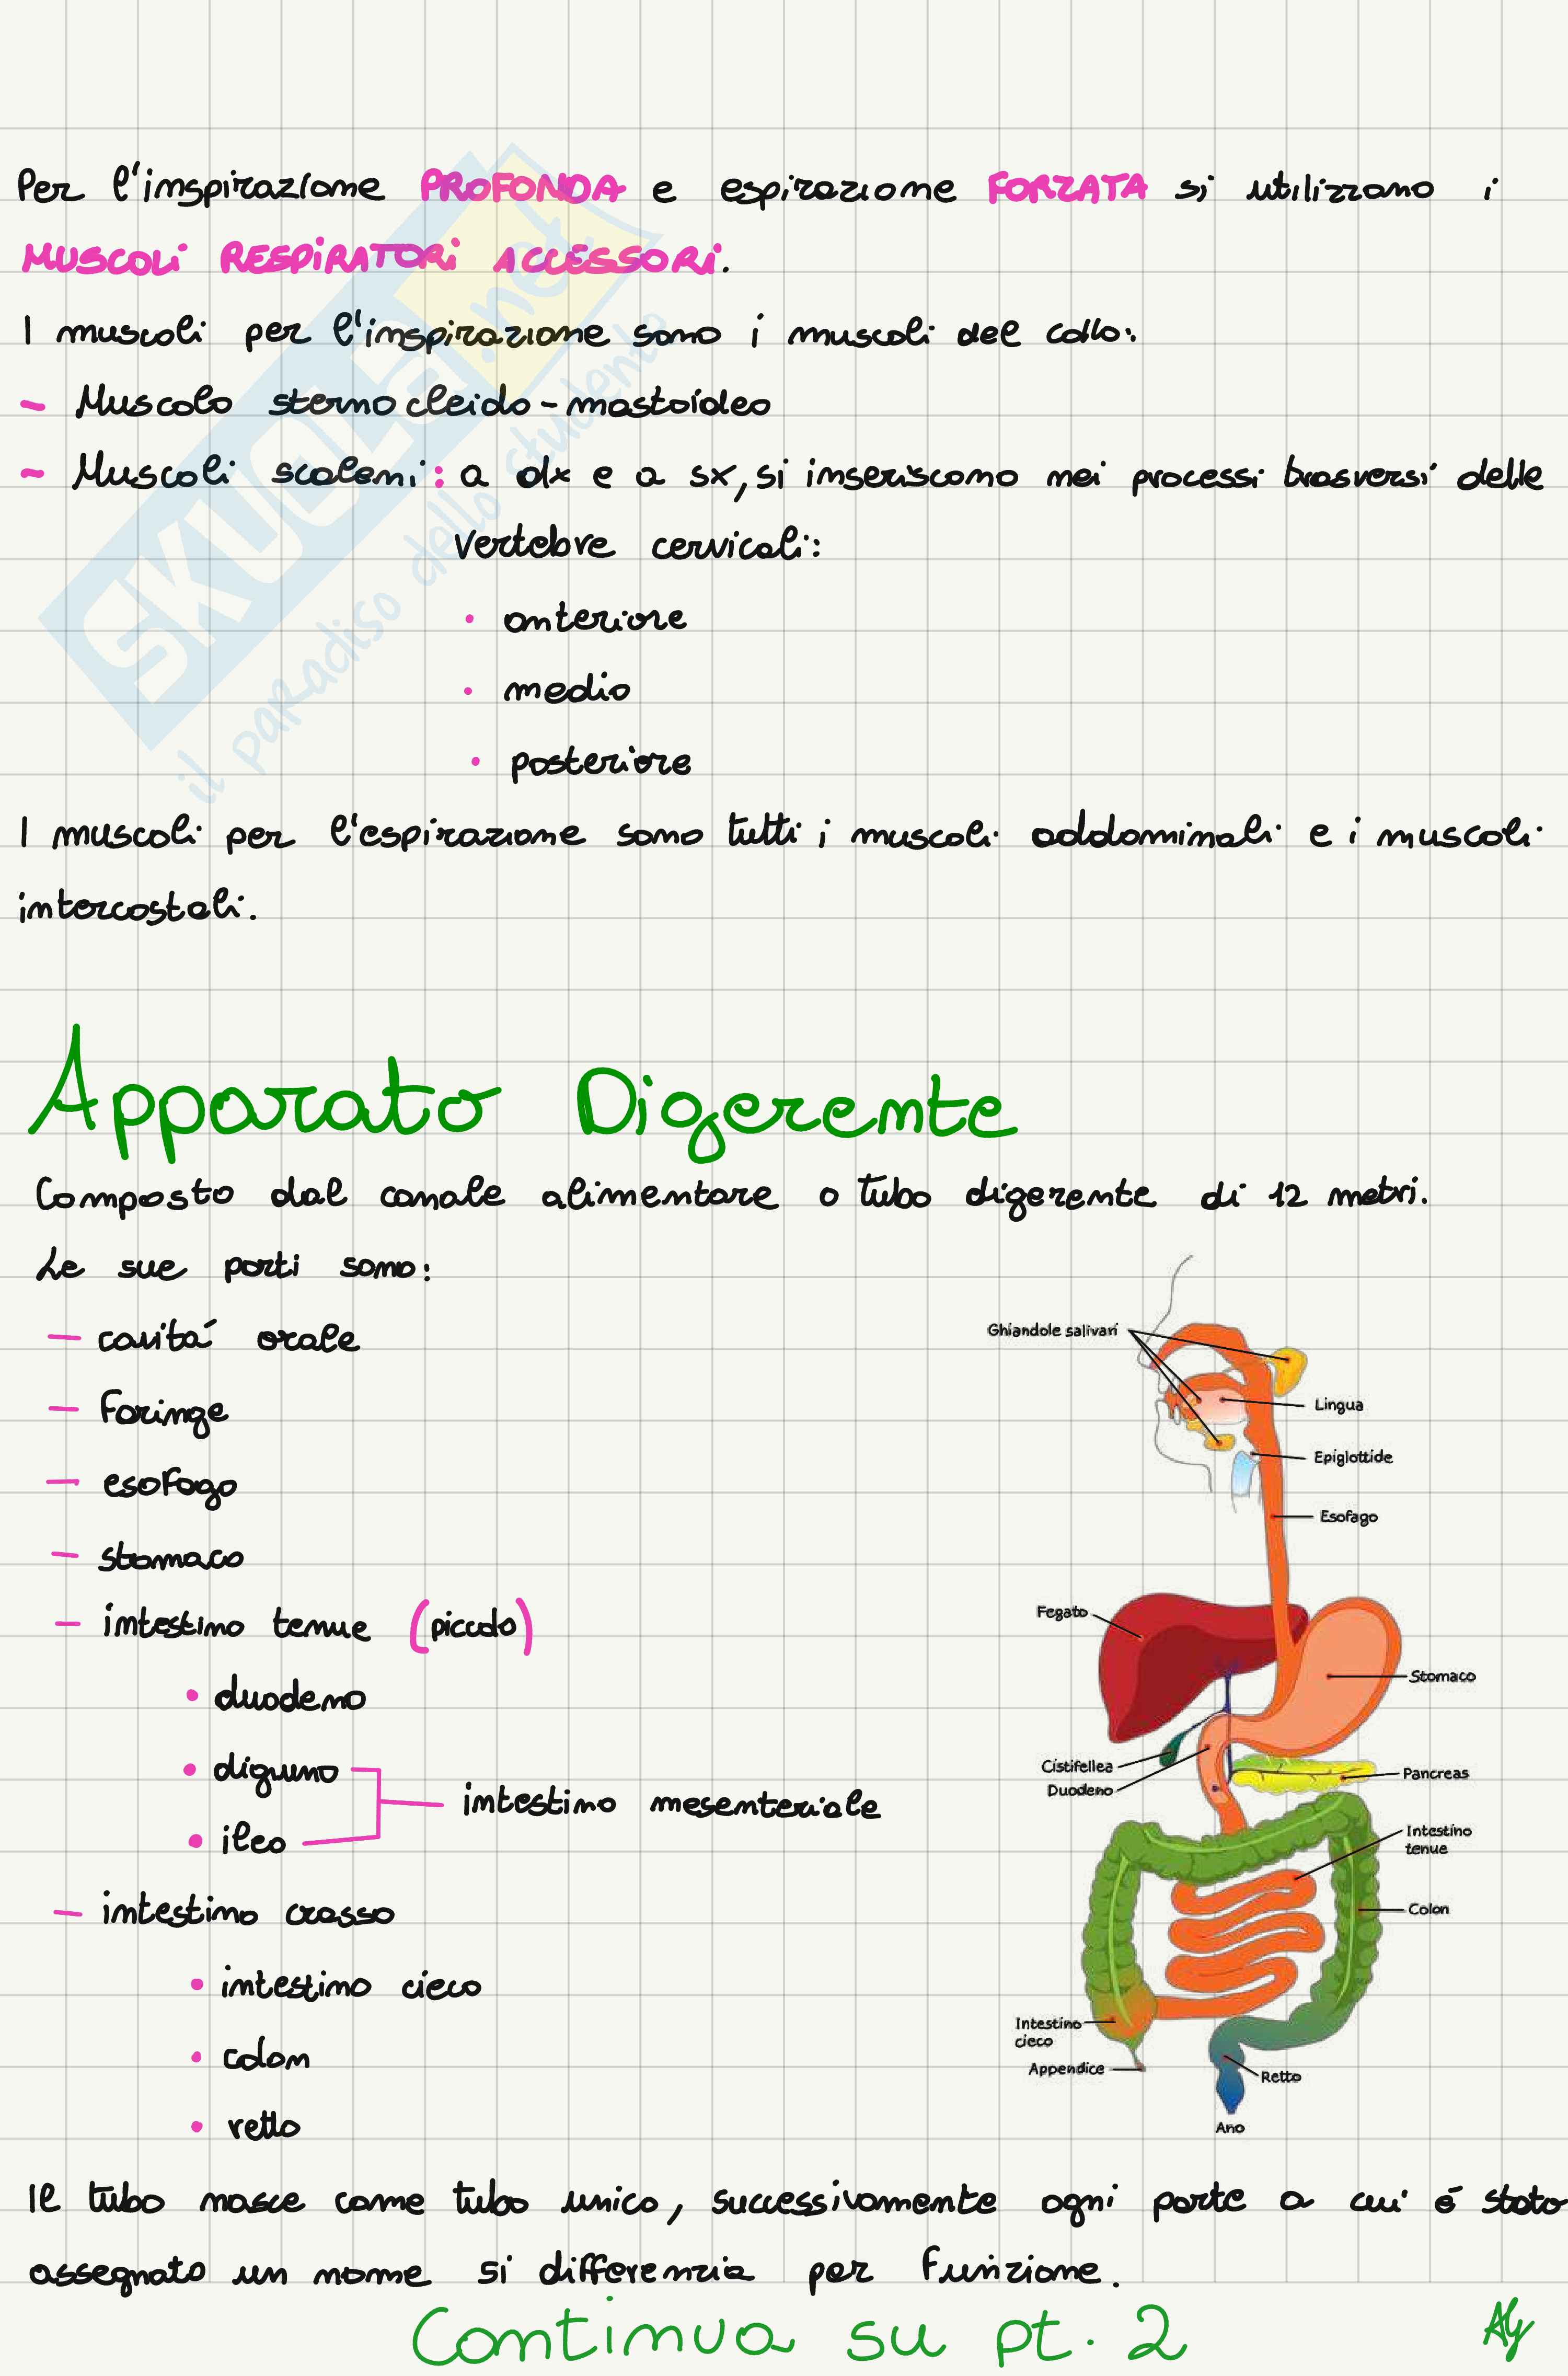 Per l'inspirazione PROFONDA e espirazione FORZATA si utilizzano i
MUSCOLI RESPIRATORI ACCESSORI.
I muscoli per l'inspirazione sono i muscoli del collo:
~ Muscolo sternocleido-mastoideo
~ Muscoli scaleni: a dx e a sx, si inseriscono nei processi trasversi delle
vertebre cervicali:
• anteriore
• medio
• posteriore
I muscoli per l'espirazione sono tutti i muscoli addominali e i muscoli
intercostali.
SKUOLA.net
il paradiso dello studente
Apparato Digerente
Composto dal canale alimentare o tubo digerente di 12 metri.
Le sue parti sono:
– cavitá orale
– faringe
– esofago
– stomaco
– intestino tenue (piccolo)
• duodeno
• digiuno
intestino mesenteriale
• ileo
– intestino crasso
• intestino cieco
• colon
• retto
Ghiandole salivari
Lingua
Epiglottide
Esofago
Fegato
Stomaco
Cistifellea
Duodeno
Pancreas
Intestino
tenue
Colon
Intestino
cieco
Appendice
Retto
Ano
Il tubo nasce come tubo unico, successivamente ogni parte a cui é stato
assegnato un nome si differenzia per funzione.
Continua su pt. 2
Aly